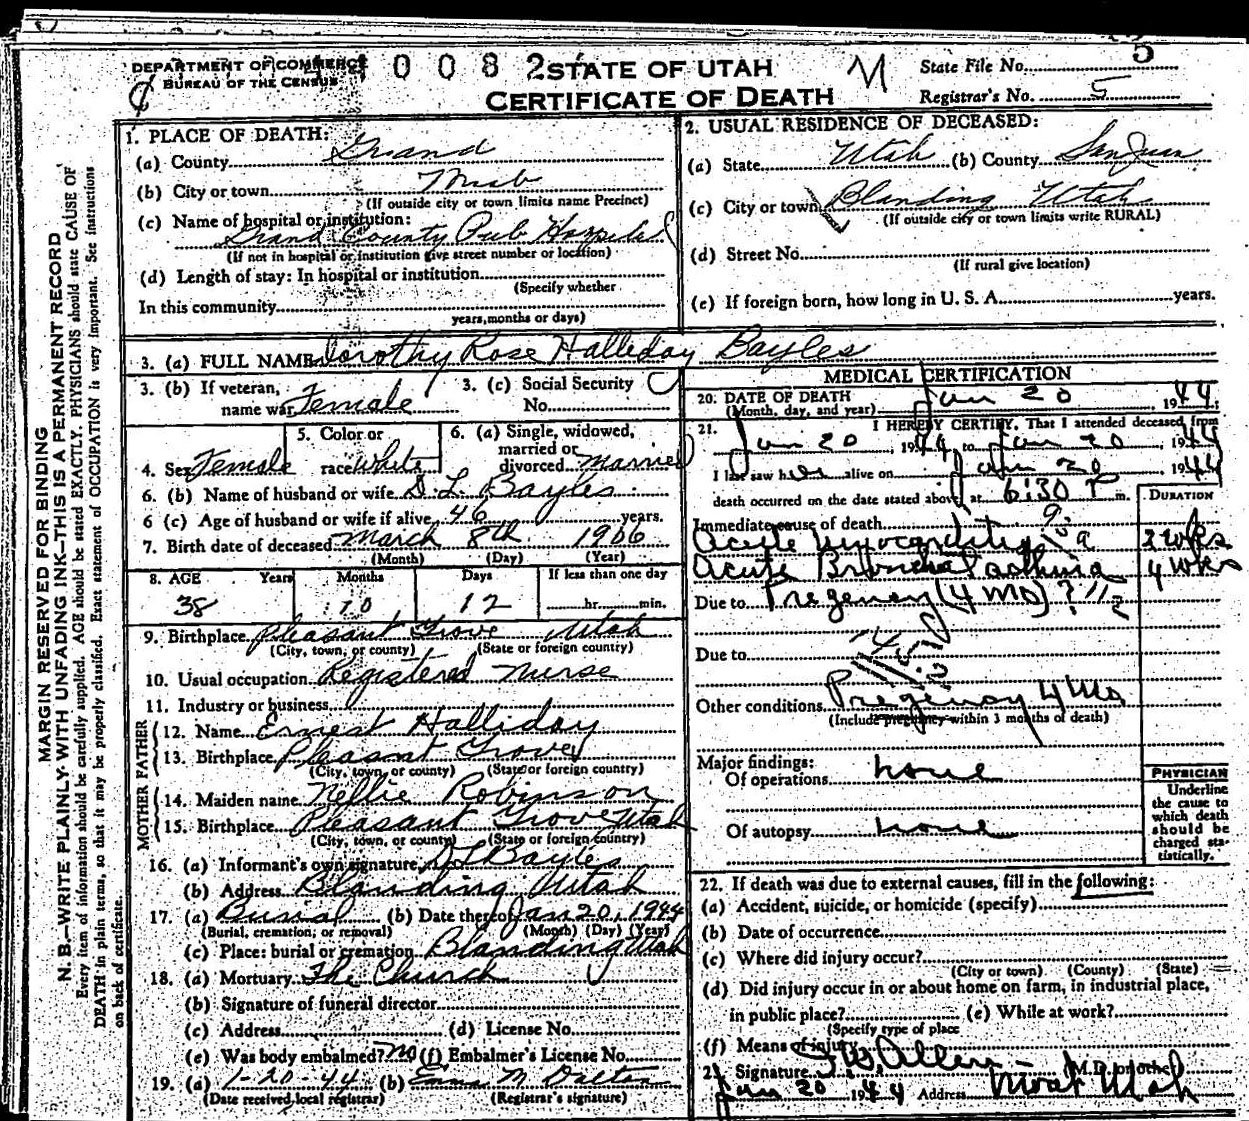 DEPARTMENT OF COMMERCE
BUREAU OF THE CENSUS
0 0 8 2
STATE OF UTAH
CERTIFICATE OF DEATH
M
State File No. 5
Registrar's No. 5
MARGIN RESERVED FOR BINDING
N. B.—WRITE PLAINLY, WITH UNFADING INK—THIS IS A PERMANENT RECORD
Every item of information should be carefully supplied. AGE should be stated EXACTLY. PHYSICIANS should state CAUSE OF
DEATH in plain terms, so that it may be properly classified. Exact statement of OCCUPATION is very important. See instructions
on back of certificate.
1. PLACE OF DEATH:
(a) County Grand
(b) City or town Moab
(If outside city or town limits name Precinct)
(c) Name of hospital or institution:
Grand County Pub Hospital
(If not in hospital or institution give street number or location)
(d) Length of stay: In hospital or institution
(Specify whether
In this community
years, months or days)
2. USUAL RESIDENCE OF DECEASED:
(a) State Utah (b) County San Juan
(c) City or town Blanding Utah
(If outside city or town limits write RURAL)
(d) Street No.
(If rural give location)
(e) If foreign born, how long in U. S. A. years.
3. (a) FULL NAME Dorothy Rose Halliday Bayles
3. (b) If veteran, name war Female
3. (c) Social Security No.
4. Sex Female
5. Color or race White
6. (a) Single, widowed, married or divorced Married
6. (b) Name of husband or wife D. L. Bayles
6 (c) Age of husband or wife if alive 46 years.
7. Birth date of deceased March 8th 1906
(Month) (Day) (Year)
8. AGE Years Months Days If less than one day
38 10 12 hr. min.
9. Birthplace Pleasant Grove Utah
(City, town, or county) (State or foreign country)
10. Usual occupation Registered Nurse
11. Industry or business
FATHER
12. Name Ernest Halliday
13. Birthplace Pleasant Grove
(City, town, or county) (State or foreign country)
MOTHER
14. Maiden name Nellie Robinson
15. Birthplace Pleasant Grove Utah
(City, town, or county) (State or foreign country)
16. (a) Informant's own signature D L Bayles
(b) Address Blanding Utah
17. (a) Burial (b) Date thereof Jan 20, 1944
(Burial, cremation, or removal) (Month) (Day) (Year)
(c) Place: burial or cremation Blanding Utah
18. (a) Mortuary The Church
(b) Signature of funeral director
(c) Address (d) License No.
(e) Was body embalmed? No (f) Embalmer's License No.
19. (a) 1-20-44 (b) Emma M. Dalton
(Date received local registrar) (Registrar's signature)
MEDICAL CERTIFICATION
20. DATE OF DEATH
(Month, day, and year) Jan 20, 1944;
21. I HEREBY CERTIFY, That I attended deceased from
Jan 20, 1944, to Jan 20, 1944
I last saw her alive on Jan 20 1944
death occurred on the date stated above, at 6:30 P m.
DURATION
Immediate cause of death
Acute Myocarditis 2 wks
Acute Bronchial asthma 4 wks
Due to Pregency (4 Mo)?
Due to
Other conditions Pregency 4 Mo
(Include pregnancy within 3 months of death)
Major findings:
Of operations none
Of autopsy none
PHYSICIAN
Underline
the cause to
which death
should be
charged sta-
tistically.
22. If death was due to external causes, fill in the following:
(a) Accident, suicide, or homicide (specify)
(b) Date of occurrence
(c) Where did injury occur?
(City or town) (County) (State)
(d) Did injury occur in or about home on farm, in industrial place,
in public place? (e) While at work?
(Specify type of place
(f) Means of injury
2 Signature Allen (M.D. or other)
Jan 20 1944 Address Moab Utah